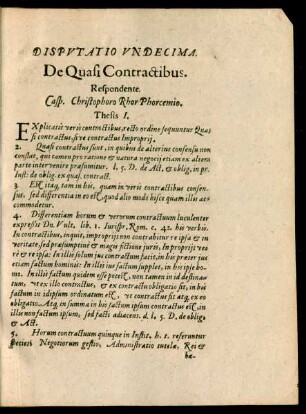 DISPVTATIO VNDECIMA.
De Quasi Contractibus.
Respondente
Casp. Christophoro Rhor Phorcemio.
Thesis I.
EXplicatis veris contractibus, recto ordine sequuntur Qua-
si contractus, sive contractus Improprij.
2. Quasi contractus sunt, in quibus de alterius consensu non
constat, qui tamen pro ratione & natura negocij etiam ex altera
parte intervenire præsumitur. l. 5. D. de Act. & oblig. in pr.
Inst: de oblig. ex quasi contract.
3. Est itaq; tam in his, quam in veris contractibus consen-
sus, sed differentia in eo est, quod alio modo hisce quam illis ac-
commodetur.
4. Differentiam horum & verorum contractuum luculenter
expressit Dn. Vult. lib. 1. Iurispr. Rom. c. 42. his verbis.
In contractibus, inquit, improprijs non contrabitur re ipsa & in
veritate, sed præsumptivè & magis fictione juris, In proprijs ve-
rò & re ipsa: In illis solum jus contractum facit, in his præter jus
etiam factum hominis: In illis jus factum supplet, in his ipse ho-
mo. In illis factum quidem esse potest, non tamen in id destina-
tum, ut ex illo contractus, & ex contractu obligatio sit, in his
factum in id ipsum ordinatum est, ut contractus sit atq; ex eo
obligatio. Atq; in summa in his factum ipsum contractus est, in
illis non factum ipsum, sed facti adjacens. d. l. 5. D. de oblig.
& Act.
5. Horum contractuum quinque in Instit. h. t. referuntur
species Negotiorum gestio, Administratio tutelæ, Rei &
he-